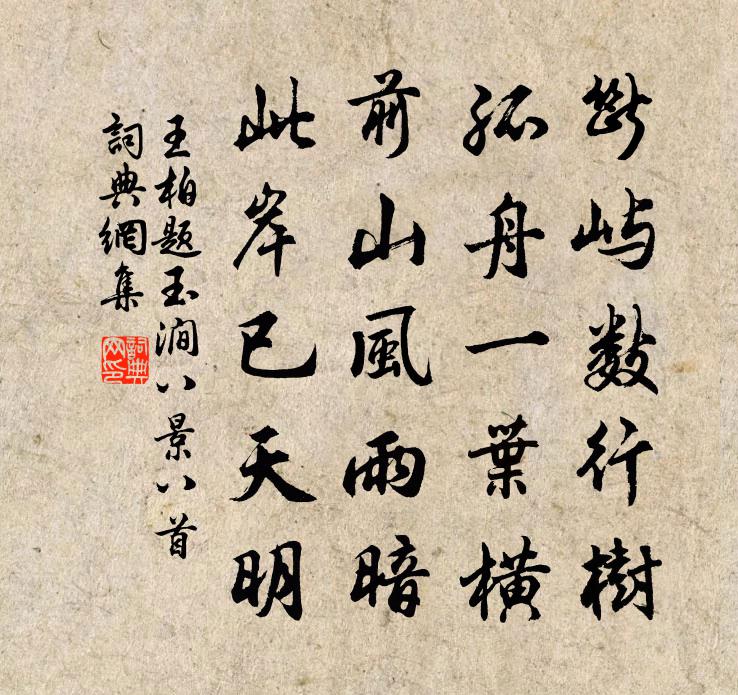 斷嶼數行樹
孤舟一葉橫
前山風雨暗
此岸已天明
王柏題玉澗八景八首
詞典網集
詞典網印